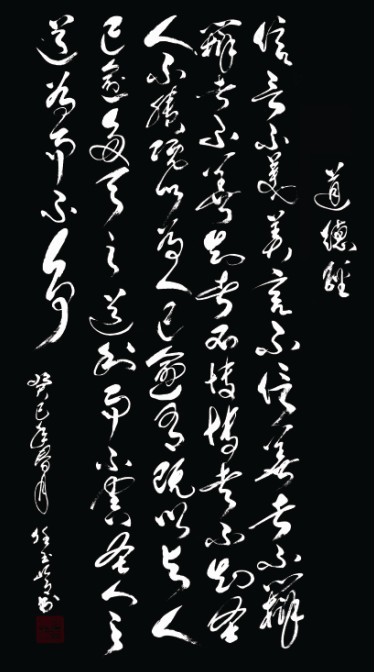 道德經
信言不美美言不信善者不辯
辯者不善知者不博博者不知圣
人不積既以為人己愈有既以与人
己愈多天之道利而不害圣人之
道為而不争
癸巳年春月